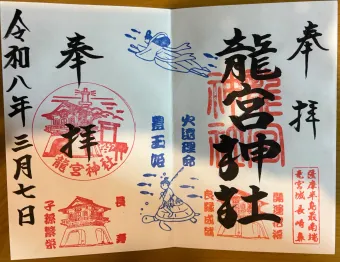 奉拝
龍宮神社
薩摩半島最南端
竜宮城 長崎鼻
開運招福
良縁成就
火遠理命
豊玉姫
奉拝
龍宮神社
長寿
子孫繁栄
令和八年三月七日